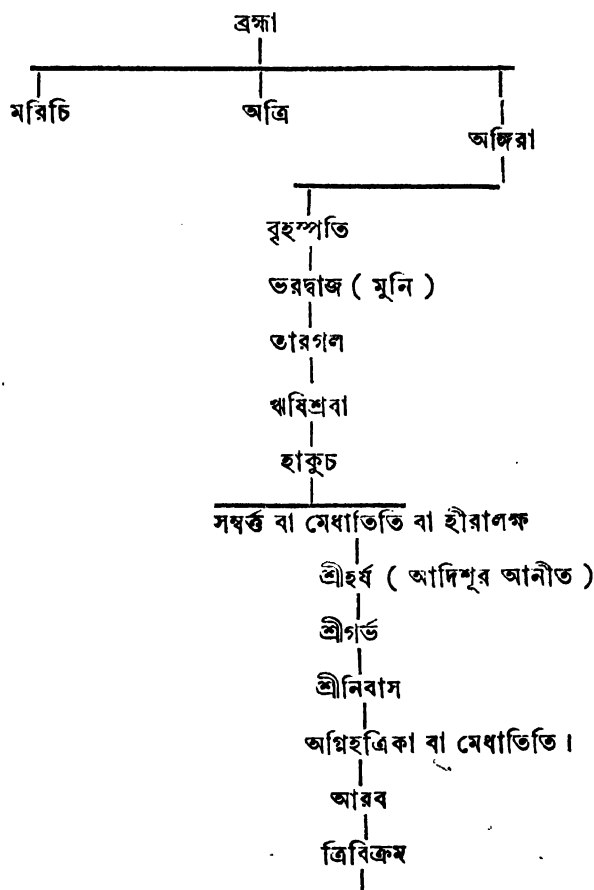 ব্রহ্মা
মরিচি অত্রি
অঙ্গিরা
বৃহস্পতি
ভরদ্বাজ ( মুনি )
তারগল
ঋষিশ্রবা
হাকুচ
সম্বর্ত্ত বা মেধাতিতি বা হীরালক্ষ
শ্রীহর্ষ ( আদিশূর আনীত )
শ্রীগর্ভ
শ্রীনিবাস
অগ্নিহত্রিকা বা মেধাতিতি।
আরব
ত্রিবিক্রম